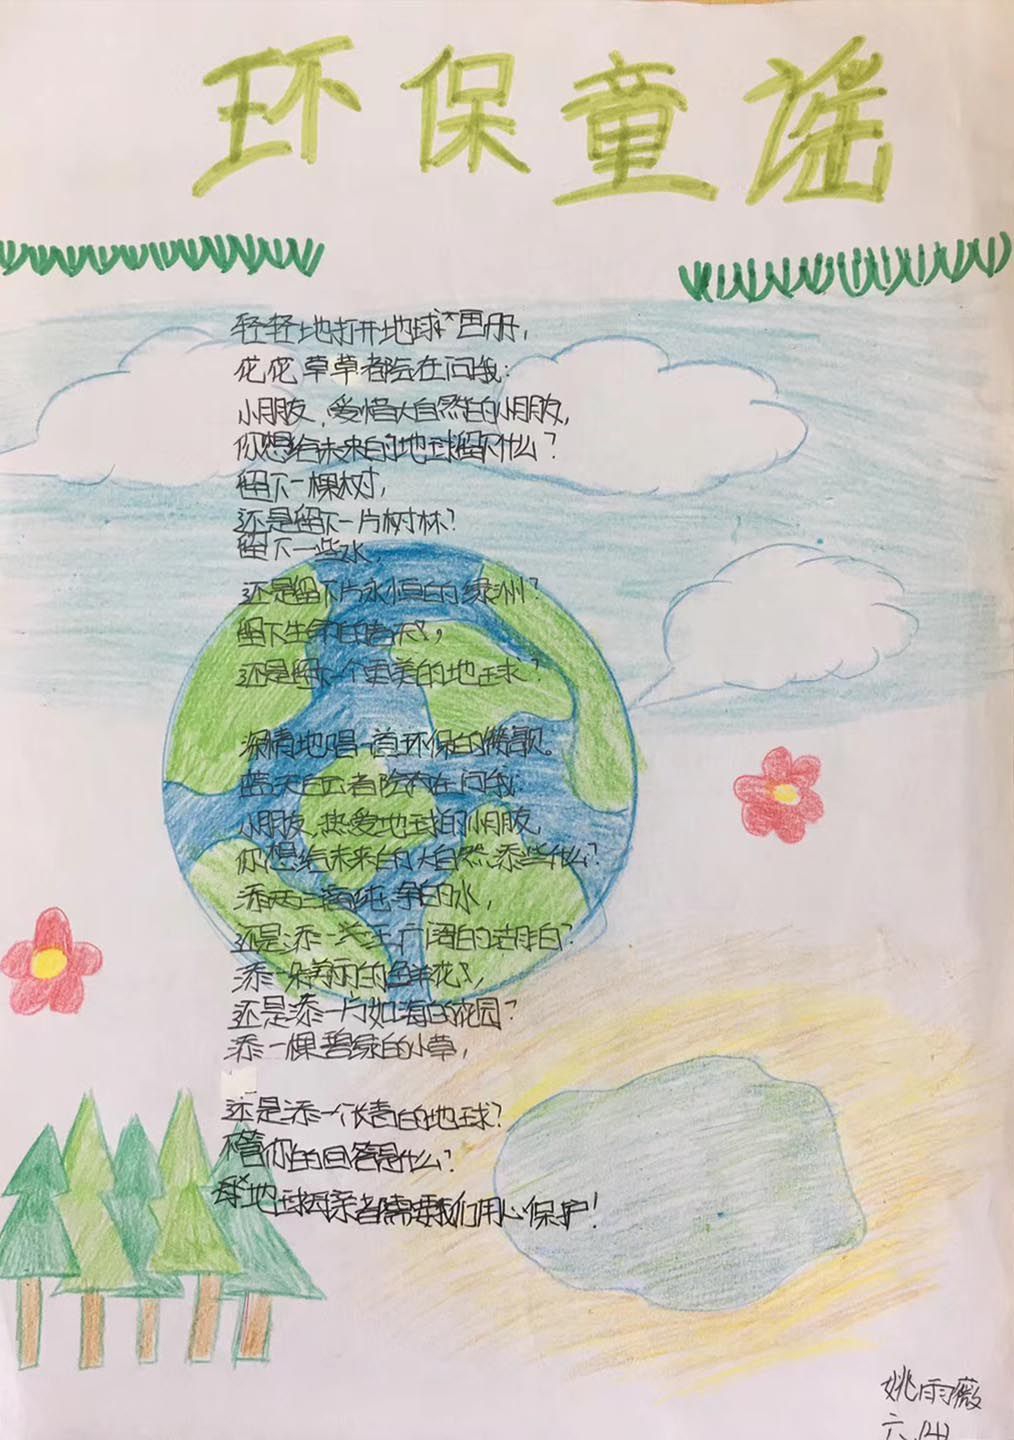 环保童谣
轻轻地打开地球画册，
花花草草都会在问我：
小朋友，爱惜大自然的小朋友，
你想给未来的地球留下什么？
留下一棵树，
还是留下一片树林？
留下一些水，
还是留下片永恒的绿洲？
留下生命的春天，
还是留下一个更美的地球？
深情地唱一首环保的歌。
蓝天白云都会在问我：
小朋友，热爱地球的小朋友，
你想给未来的大自然添些什么？
添两三滴纯净的水，
还是添一片广阔的？
添一朵美丽的鲜花，
还是添一片如海的花园？
添一棵碧绿的小草，
还是添一个长青的地球？
不管你的回答是什么？
地球母亲都需要我们用心保护！
姚雨薇
六、(4)